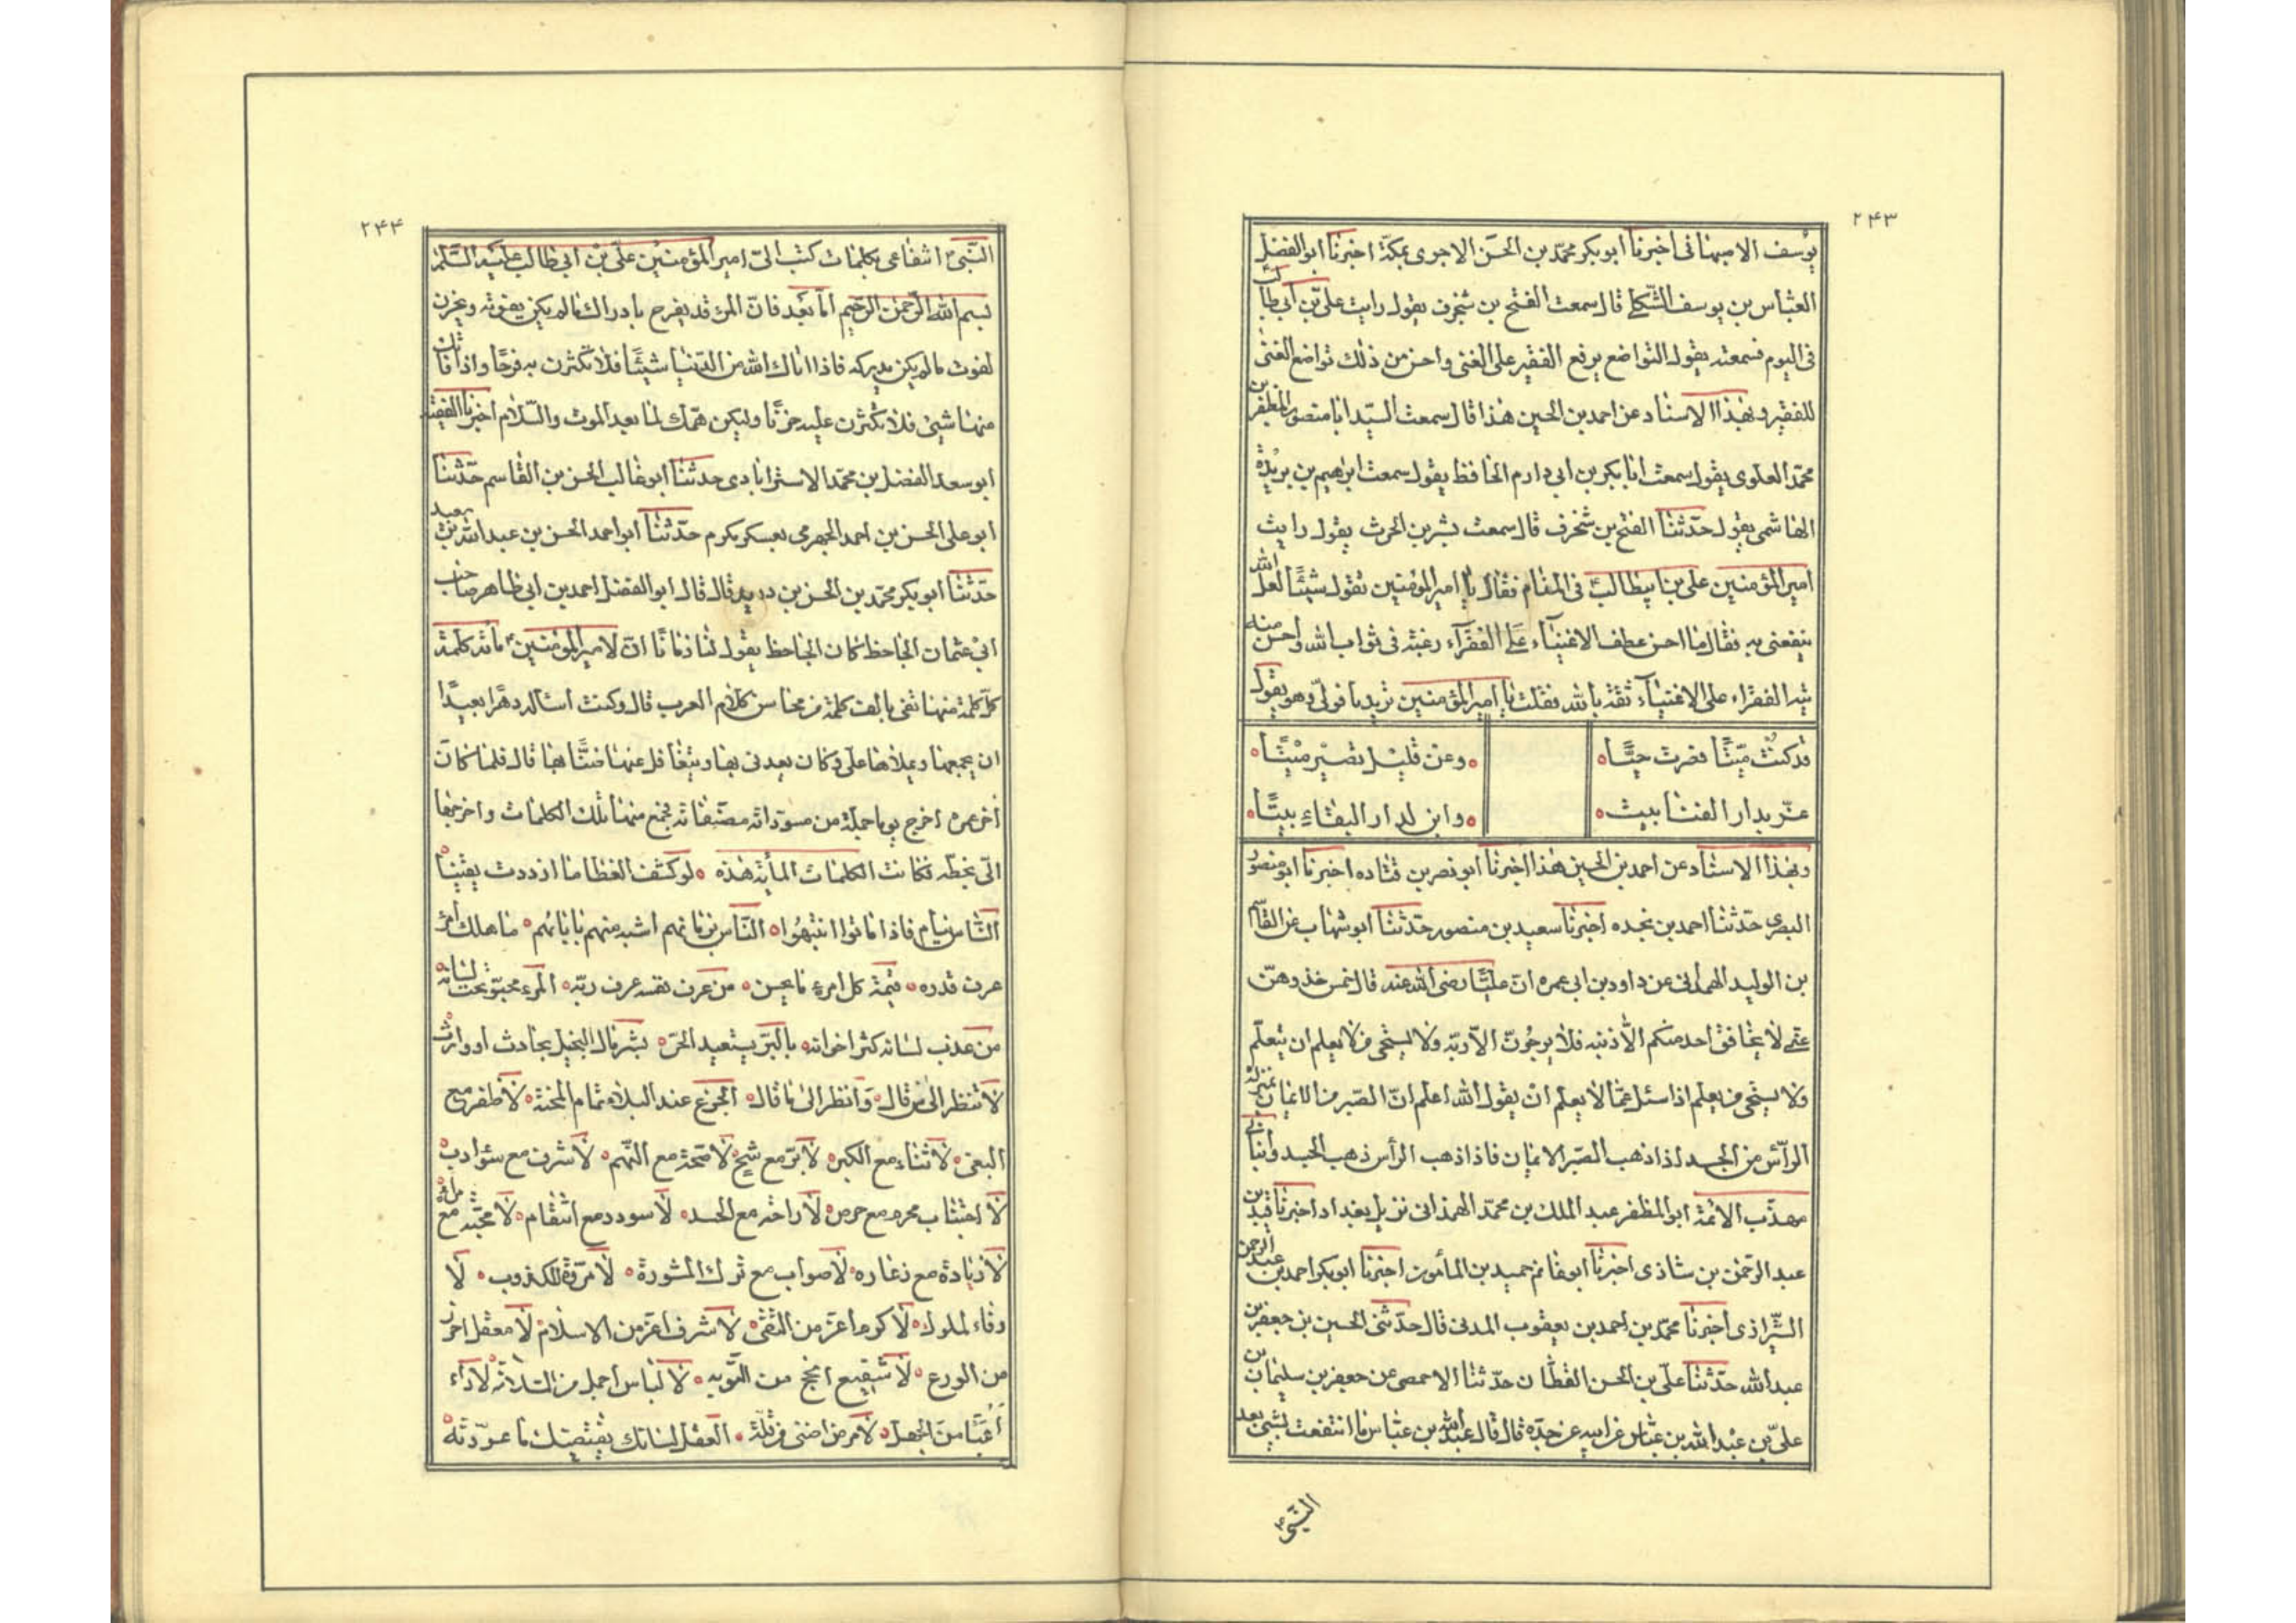 ۲۴۳
يوسف الاصبهانى اخبرنا ابو بكر محمّد بن الحسن الاجرى بمكّة اخبرنا ابو الفضل
العبّاس بن يوسف الشكلى قال سمعت الفتح بن شخرف يقول رايت علىّ بن أبي طالب
فى اليوم فسمعته يقول التواضع يرفع الفقير على الغنى واحسن من ذلك تواضع الغنى
للفقير وبهذا الاسناد عن احمد بن الحسين هذا قال سمعت السيّد ابا منصور المظفر بن
محمّد العلوى يقول سمعت ابا بكر بن ابى دارم الحافظ يقول سمعت ابراهيم بن بريدة
الهاشمى يقول حدّثنا الفتح بن شخرف قال سمعت بشر بن الحرث يقول رايت
امير المؤمنين على بن ابيطالب ع فى المنام فقال يا امير المؤمنين تقول شيئًا لعلّ الله
ينفعنى به فقال ما احسن عطف الاغنيآء على الفقرآء رغبة فى ثواب الله واحسن منه
تيه الفقراء على الاغنيآء ثقة بالله فقلت يا امير المؤمنين تزيد يا فولّى وهو يقول
قد كنت ميّتًا فصرت حيًّا ٥ ٥ وعن قليل تصير ميتًا ٥
عزّ بدار الفنا بيت ٥ ٥ وابن لدار البقاء بيتًا ٥
وبهذا الاسناد عن احمد بن الحسين هذا اخبرنا ابو نصر بن قتاده اخبرنا ابو منصور
البصرى حدّثنا احمد بن نجده اخبرنا سعيد بن منصور حدّثنا ابو شهاب عن القاسم
بن الوليد الهمدانى عن داود بن ابى عمره انّ عليًّا رضى الله عنه قال خمس خذوهنّ
عنّى لا يخافنّ احد منكم الّا ذنبه فلا يرجونّ الّا ربّه ولا يستحى من لا يعلم ان يتعلّم
ولا يستحى من يعلم اذا سئل عمّا لا يعلم ان يقول الله اعلم انّ الصّبر من الايمان بمنزلة
الرأس من الجسد اذا ذهب الصّبر الايمان فاذا ذهب الرأس ذهب الجسد وانبأنى
مهذّب الائمّة ابو المظفر عبد الملك بن محمّد الهمذانى نزيل بغداد اخبرنا بن
عبد الرّحمن بن شاذى اخبرنا ابو غانم حميد بن المأمون اخبرنا ابو بكر احمد بن عبد الرحمن
الشّيرازى اخبرنا محمّد بن احمد بن يعقوب المدنى قال حدّثنى الحسين بن جعفر بن
عبد الله حدّثنا علىّ بن الحسن القطّان حدّثنا الاصمعى عن جعفر بن سليمان بن
علىّ بن عبد الله بن عبّاس عن ابيه عن جدّه قال قال عبد الله بن عبّاس ما انتفعت بشئ بعد
النّبىّ
۲۴۴
النّبىّ انتفاعى بكلمات كتب الىّ امير المؤمنين علىّ بن ابى طالب عليه السّلام
بسم الله الرّحمن الرّحيم امّا بعد فانّ المرء قد يفرح بادراك ما لم يكن يفوته ويحزن
لفوت ما لم يكن يدركه فاذا اتاك الله من الدّنيا شيئًا فلا تكثرن به فرحًا واذا فاتك
منها شئ فلا تكثرن عليه حزنًا وليكن همّك لما بعد الموت والسّلام اخبرنا الفقيه
ابو سعد الفضل بن محمّد الاسترابادى حدثنا ابو غالب الحسن بن القاسم حدّثنا
ابو على الحسن بن احمد الجهرمى بعسكر مكرم حدّثنا ابو احمد الحسن بن عبد الله بن سعيد
حدّثنا ابو بكر محمّد بن الحسن بن دريد قال قال ابو الفضل احمد بن ابى طاهر صاحب
ابى عثمان الجاحظ كان الجاحظ يقول لنا زمانًا انّ لامير المؤمنين ع مائة كلمة
كلّ كلمة منها تفى بالف كلمة من محاسن كلام العرب قال وكنت اسأله دهرًا بعيدًا
ان يجمعها ويملاها علىّ وكان يعدنى بها ويتغافل عنها ضنًّا بها قال فلما كان
آخر عمره اخرج يوما جملة من مسوّداته مصنّفاته فجمع منها تلك الكلمات واخرجها
الىّ بخطّه فكانت الكلمات المأية هذه ٥ لو كشف الغطا ما ازددت يقينًا ٥
النّاس نيام فاذا ماتوا انتبهوا ٥ النّاس بزمانهم اشبه منهم بابائهم ٥ ما هلك امرؤ
عرف قدره ٥ قيمة كل امرئ ما يحسن ٥ من عرف نفسه عرف ربّه ٥ المرء مخبوّ تحت لسانه ٥
من عذب لسانه كثر اخوانه ٥ بالبرّ يستعبد الحرّ ٥ بشّر مال البخيل بحادث او وارث ٥
لا تنظر الى من قال وانظر الى ما قال ٥ الجزع عند البلاء تمام المحنة ٥ لا ظفر مع
البغى ٥ لا ثناء مع الكبر ٥ لا برّ مع شحّ ٥ لا صحّة مع النّهم ٥ لا شرف مع سوء ادب ٥
لا اجتناب محرم مع حرص ٥ لا راحة مع الحسد ٥ لا سودد مع انتقام ٥ لا محبّة مع مراء ٥
لا زيادة مع زعاره ٥ لا صواب مع ترك المشورة ٥ لا مروّة للكذوب ٥ لا
وفاء لملوك ٥ لا كرم اعزّ من التقى ٥ لا شرف اعزّ من الاسلام ٥ لا معقل احرز
من الورع ٥ لا شفيع انجح من التّوبه ٥ لا لباس اجمل من السّلامة ٥ لا داء
أعيا من الجهل ٥ لا مرض اضنى من قلّة ٥ العقل لسانك يقتضيك ما عوّدته ٥